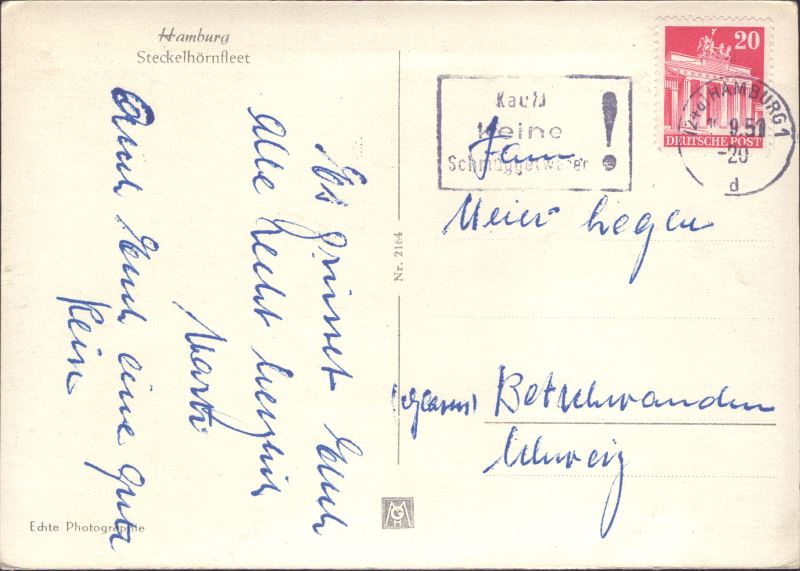 Hamburg
Steckelhörnfleet
Es grüsset Euch
Alle Recht herzlich
Auch Euch eine gute
Nr. 2164
Echte Photographie
Kauft
Keine
Schmuggelware
!
20
DEUTSCHE POST
(24a) HAMBURG 1
9.51
-20
d
Fam
Meier Legler
(Glarus) Betschwanden
Schweiz